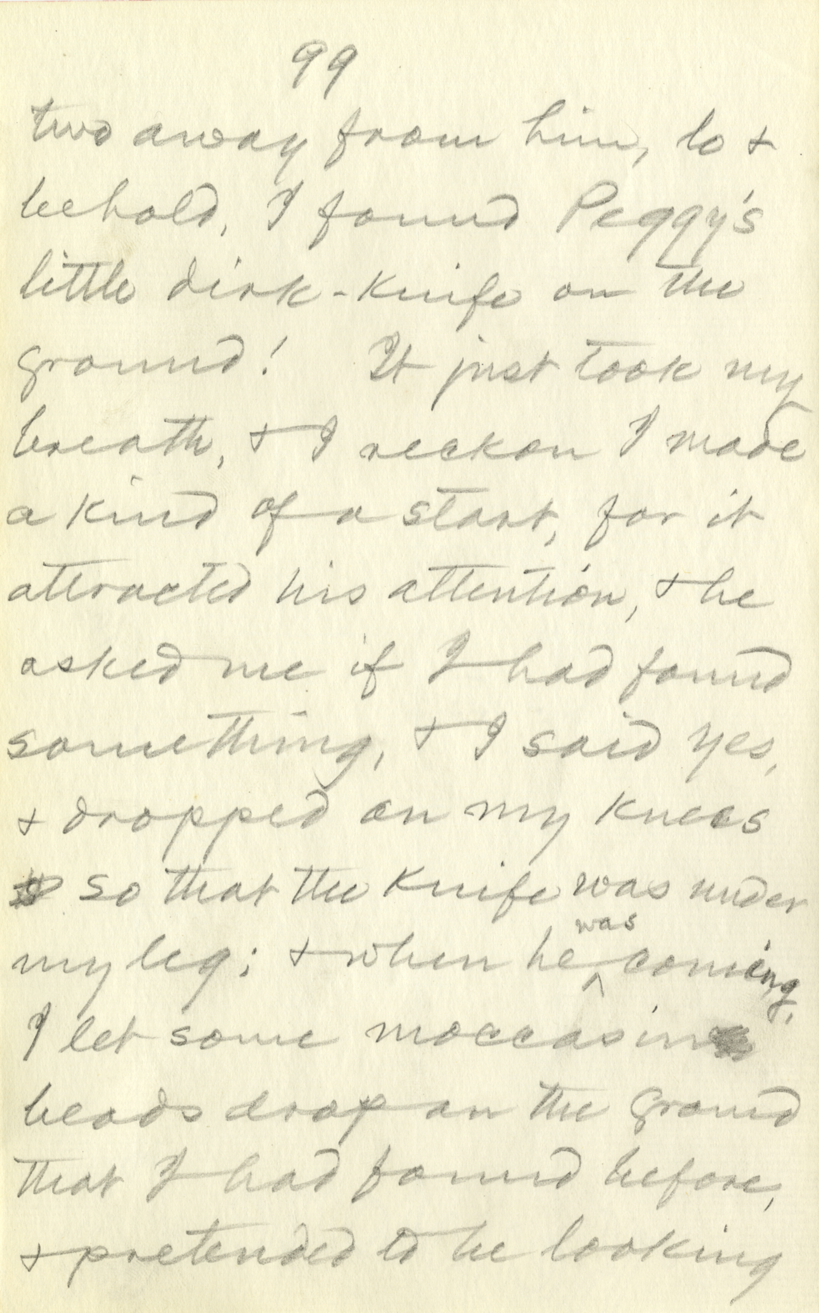 99
two away from him, lo &
behold, I found Peggy's
little dirk-knife on the
ground! It just took my
breath, & I reckon I made
a kind of a start, for it
attracted his attention, & he
asked me if I had found
something, & I said yes,
& dropped on my knees
so that the knife was under
my leg; & when he was coming,
I let some moccasin
beads drop on the ground
that I had found before,
& pretended to be looking